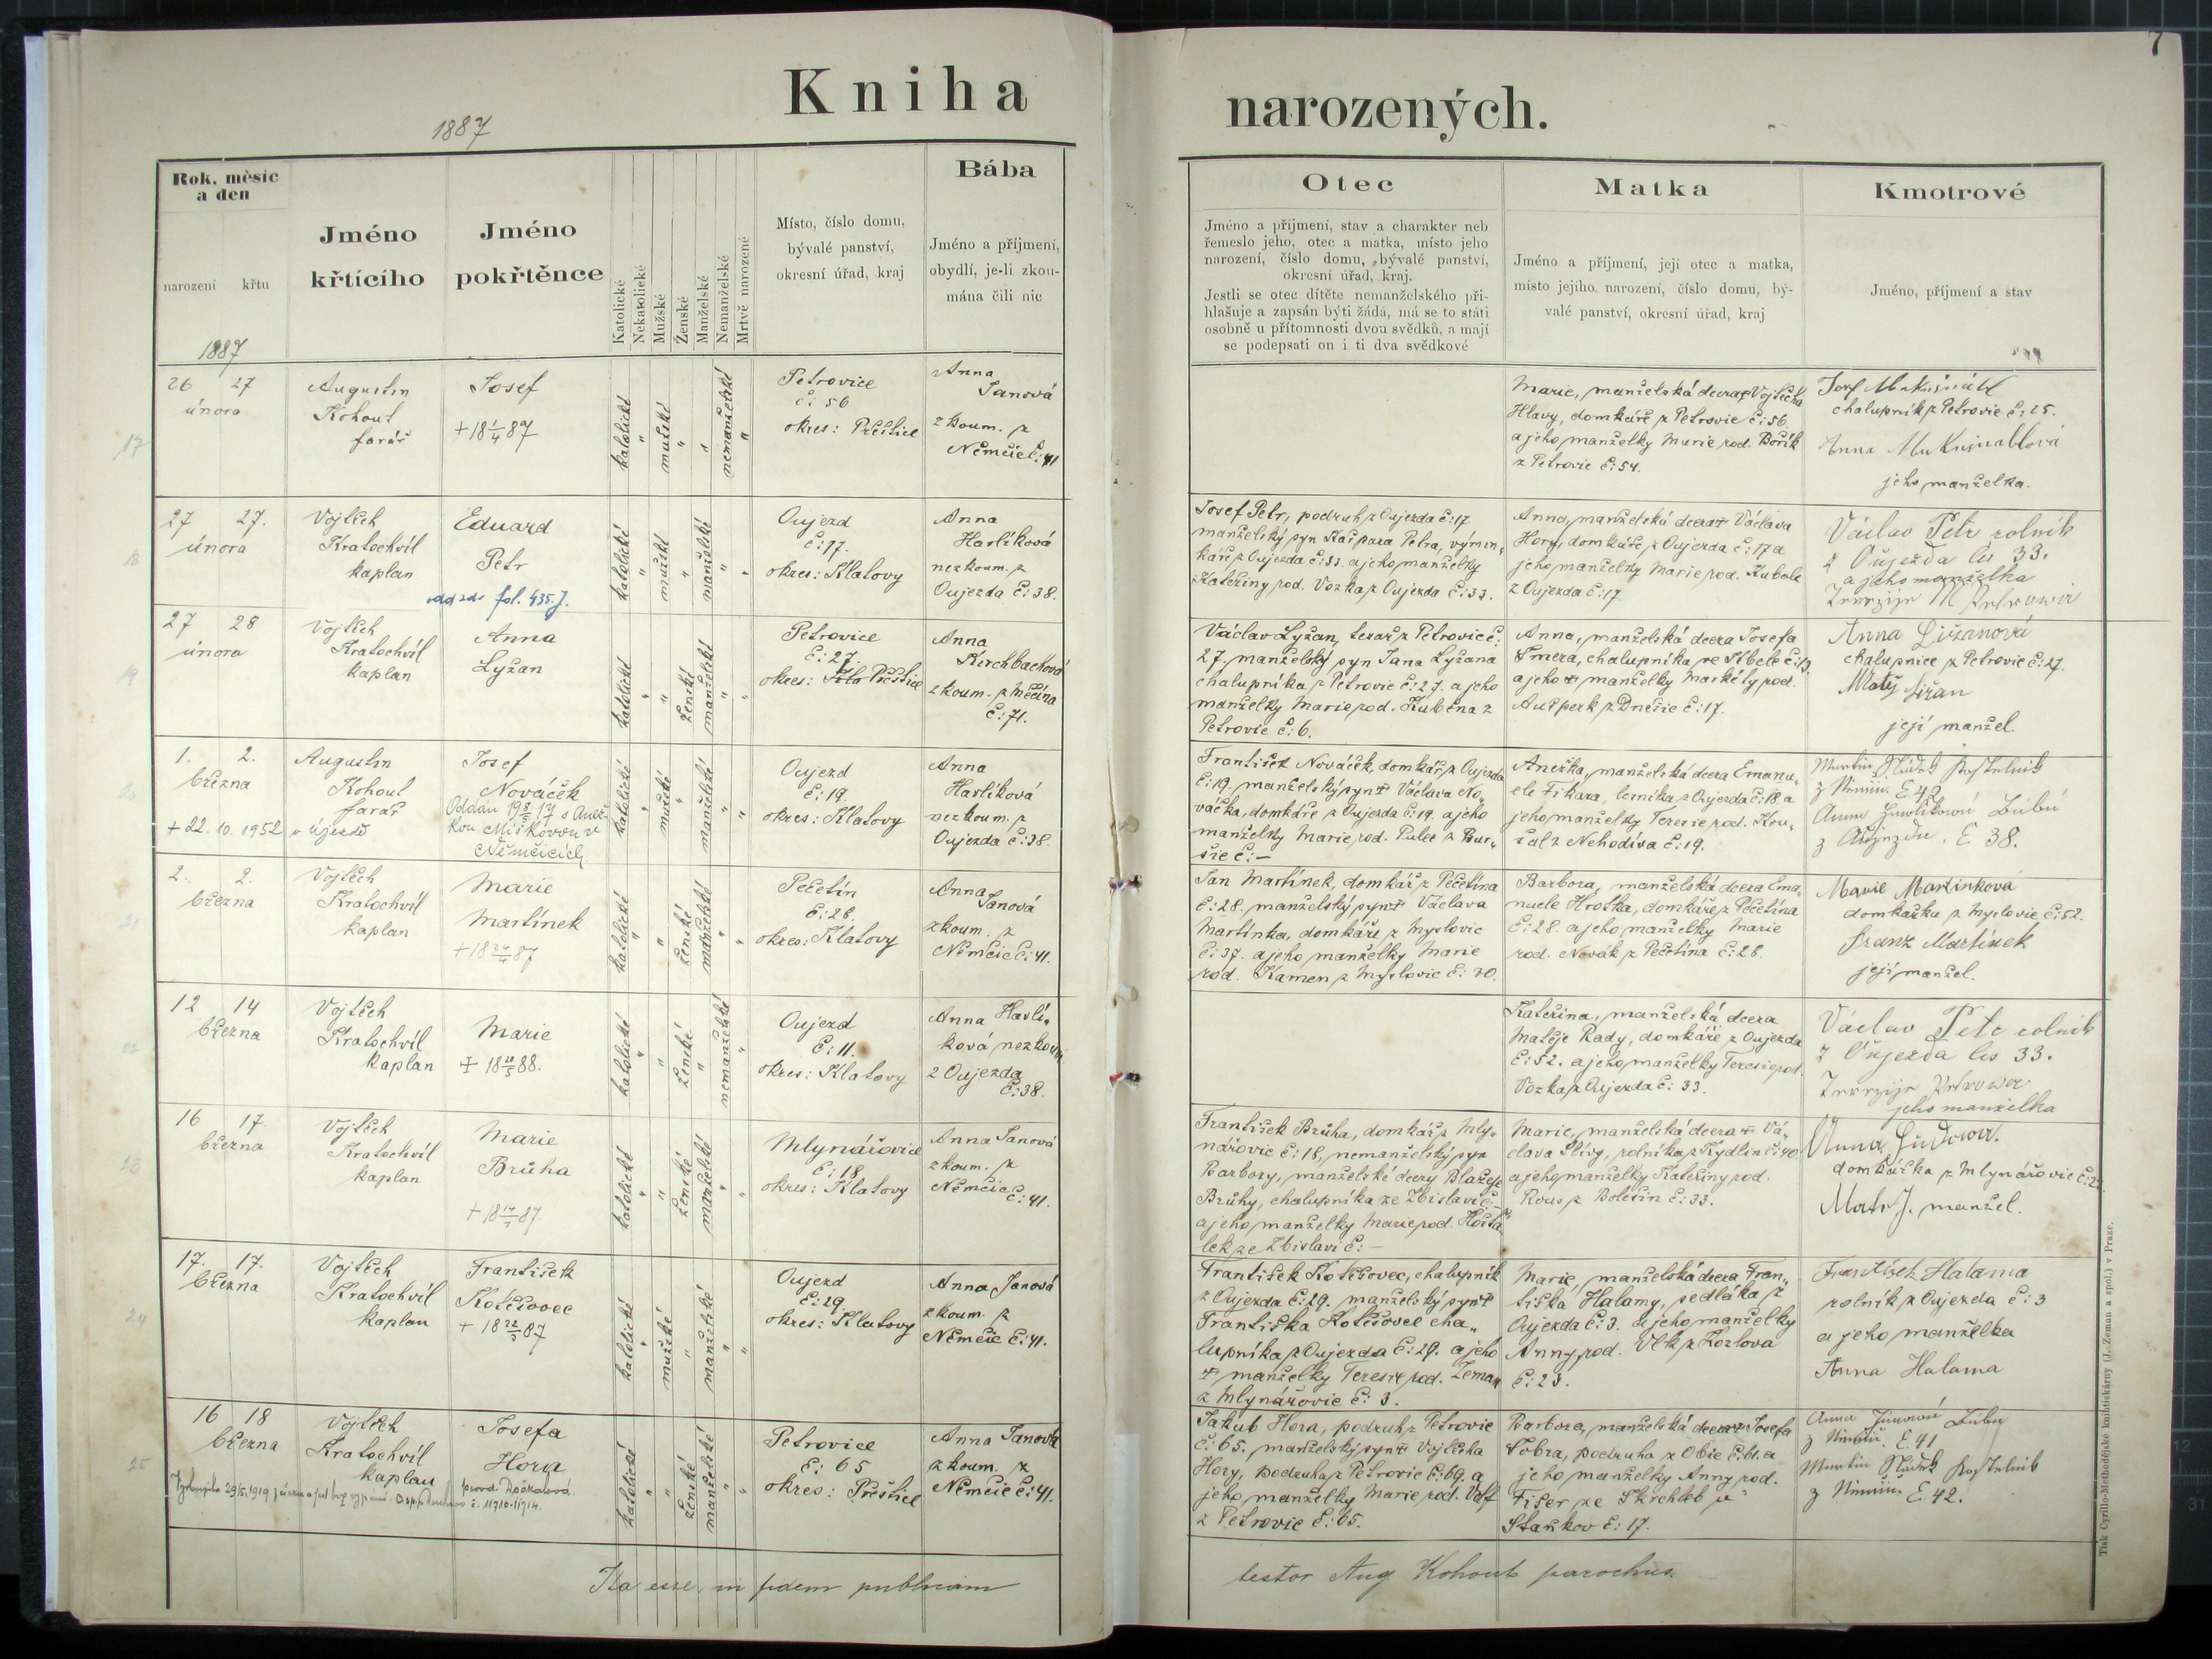 Kniha
narozených.
7
1887
Rok, měsíc
a den
narození
křtu
Jméno
křtícího
Jméno
pokřtěnce
Katolické
Nekatolické
Mužské
Ženské
Manželské
Nemanželské
Mrtvě narozené
Místo, číslo domu,
bývalé panství,
okresní úřad, kraj
Bába
Jméno a příjmení,
obydlí, je-li zkou-
mána čili nic
Otec
Jméno a přijmení, stav a charakter neb
řemeslo jeho, otec a matka, místo jeho
narození, číslo domu, bývalé panství,
okresní úřad, kraj.
Jestli se otec dítěte nemanželského při-
hlašuje a zapsán býti žádá, má se to státi
osobně u přítomnosti dvou svědků, a mají
se podepsati on i ti dva svědkové
Matka
Jméno a příjmení, její otec a matka,
místo jejího narození, číslo domu, bý-
valé panství, okresní úřad, kraj
Kmotrové
Jméno, příjmení a stav
1887
17
26 27
února
Augustin
Kohout
farář
Josef
+ 18 1/4 87
katolické
"
mužské
"
"
nemanželské
"
Petrovice
č: 56
okres: Přeštice
Anna
Janová
zkoum. z
Němčic č: 41
Marie, manželská dcera Vojtěcha
Hlavy, domkáře z Petrovic č: 56
a jeho manželky Marie rod. Bořík
z Petrovic č: 54.
chalupník z Petrovic č: 25.
Anna
jeho manželka.
18
27 27.
února
Vojtěch
Kratochvíl
kaplan
Eduard
Petr
fol. 435. J.
katolické
"
mužské
"
manželské
"
"
Oujezd
č: 17.
okres: Klatovy
Anna
Havlíková
nezkoum. z
Oujezda č: 38.
Josef Petr, podruh z Oujezda č: 17
manželský syn Kašpara Petra, výmin„
káře z Oujezda č: 33. a jeho manželky
Kateřiny rod. Vozka z Oujezda č: 33.
Anna, manželská dcera + Václava
Hory, domkáře z Oujezda č: 17 a
jeho manželky Marie rod. Kubale
z Oujezda č: 17
Václav Petr rolník
z Oujezda čis 33.
a jeho manželka
19
27 28
února
Vojtěch
Kratochvíl
kaplan
Anna
Lyžan
katolické
"
"
ženské
manželské
"
"
Petrovice
č: 27.
okres: Přeštice
Anna
Kerchbachová
zkoum. z Měčína
č: 71.
Václav Lyžan, tesař z Petrovic č:
27. manželský syn Jana Lyžana
chalupníka z Petrovic č: 27. a jeho
manželky Marie rod. Kuběna z
Petrovic č: 6.
Anna, manželská dcera Josefa
Šmera, chalupníka ve
a jeho + manželky Markéty rod.
Aušperk z Dnešic č: 17.
Anna Ližanová
chalupnice z Petrovic č: 27.
Matěj Ližan
její manžel.
20
1. 2.
března
+ 22. 10. 1952 v Újezdě
Augustin
Kohout
farář
Josef
Nováček
Oddán 19 8/5 17 s Anež-
kou Miškovou v
Němčicích
katolické
"
mužské
"
manželské
"
"
Oujezd
č: 19
okres: Klatovy
Anna
Havlíková
nezkoum. z
Oujezda č: 38.
František Nováček, domkář z Oujezda
č: 19. manželský syn + Václava No„
váčka, domkáře z Oujezda č: 19. a jeho
manželky Marie rod. Pulec z
č: —
Anežka, manželská dcera Emanu„
ele Fikara, lesníka z Oujezda č: 18 a
jeho manželky Teresie rod. Kou„
z Nehodíva č: 19.
Martin Sládek
z Němčic. č 42
Anna Havlíková Bába
z Oujezdu. č 38.
21
2. 2.
března
Vojtěch
Kratochvíl
kaplan
Marie
Martínek
+ 18 24/4 87
katolické
"
"
ženské
manželské
"
"
Pečetín
č: 28.
okres: Klatovy
Anna
Janová
zkoum. z
Němčic č: 41.
Jan Martínek, domkář z Pečetína
č: 28. manželský syn + Václava
Martínka, domkáře z Myslovic
č: 37. a jeho manželky Marie
rod. Kamen z Myslovic č: 30.
Barbora, manželská dcera Ema„
nuele Hrotka, domkáře z Pečetína
č: 28. a jeho manželky Marie
rod. Novák z Pečetína č: 28.
Marie Martinková
domkařka z Myslovic č: 52.
Franz Martínek
její manžel.
22
12 14
března
Vojtěch
Kratochvíl
kaplan
Marie
+ 18 28/5 88.
katolické
"
"
ženské
"
nemanželské
"
Oujezd
č: 11.
okres: Klatovy
Anna Havlí„
ková nezkoum
z Oujezda
č: 38.
Kateřina, manželská dcera
Matěje Rady, domkáře z Oujezda
č: 52. a jeho manželky Teresie rod.
Vozka z Oujezda č: 33.
Václav Petr rolník
z Oujezda čis 33.
jeho manželka
23
16 17
března
Vojtěch
Kratochvíl
kaplan
Marie
Brůha
+ 18 14/7 87.
katolické
"
"
ženské
manželské
"
"
Mlynářovice
č: 18
okres: Klatovy
Anna Janová
zkoum. z
Němčic č: 41.
František Brůha, domkář z Mly„
nářovic č: 18, nemanželský syn
Barbory, manželské dcery Blažeje
Brůhy, chalupníka ze Zbislavi č: —
a jeho manželky Marie rod. Hošťá„
lek ze Zbislavi č: —
Marie, manželská dcera + Vá„
clava Slívy, rolníka z Kydlin č: 40.
a jeho manželky Kateřiny rod.
Rous z Bolešin č: 33.
Anna
domkářka z Mlynářovic
manžel.
24
17. 17.
března
Vojtěch
Kratochvíl
kaplan
František
Kotěšovec
+ 18 22/3 87
katolické
"
mužské
"
manželské
"
"
Oujezd
č: 29
okres: Klatovy
Anna Janová
zkoum. z
Němčic č: 41.
František Kotěšovec, chalupník
z Oujezda č: 29. manželský syn +
Františka Kotěšovec cha„
lupníka z Oujezda č: 29. a jeho
+ manželky Teresie rod. Zeman
z Mlynářovic č: 3.
Marie, manželská dcera Fran„
tiška Halamy, sedláka z
Oujezda č: 3. a jeho manželky
Anny rod. Vlk z Kozlova
č: 23.
František Halama
rolník z Oujezda č: 3
a jeho manželka
Anna Halama
25
16 18
března
Vojtěch
Kratochvíl
kaplan
Josefa
Hora
katolické
"
"
ženské
manželské
"
"
Petrovice
č: 65
okres: Přeštice
Anna Janová
zkoum. z
Němčic č: 41.
Jakub Hora, podruh z Petrovic
č: 65. manželský syn + Vojtěcha
Hory, podruha z Petrovic č: 69. a
jeho manželky Marie rod. Volf
z Petrovic č: 65.
Barbora, manželská dcera + Josefa
Sobra, podruha z Obic č: 61. a
jeho manželky Anny rod.
Fišer ze Skrchleb p
Staňkov č: 17.
Anna Janová Bába
z Němčic. č. 41
Martin Sládek
z Němčic. č 42.
Ita esse, in fidem publicam
testor Aug Kohout parochus.
Tisk Cyrillo-Methodějské knihtiskárny (J. Zeman a spol.) v Praze.